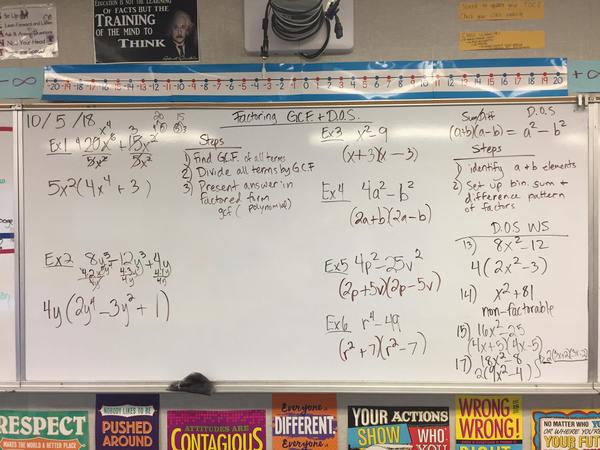 EDUCATION IS NOT THE LEARNING
OF FACTS BUT THE
TRAINING
OF THE MIND TO
THINK
-20 -19 -18 -17 -16 -15 -14 -13 -12 -11 -10 -9 -8 -7 -6 -5 -4 -3 -2 -1 0 1 2 3 4 5 6 7 8 9 10 11 12 13 14 15 16 17 18 19 20
-∞
+∞
10/5/18
Factoring GCF + D.O.S.
Ex1
5x²(4x⁴ + 3)
Steps
1) Find GCF of all terms
2) Divide all terms by GCF
3) Present answer in
factored form
gcf (polynomial)
Ex2
4y(2y⁴ - 3y² + 1)
Ex3 x² - 9
(x+3)(x-3)
Ex4 4a² - b²
(2a+b)(2a-b)
Ex5 4p² - 25v²
(2p+5v)(2p-5v)
Ex6 r⁴ - 49
(r²+7)(r²-7)
Sum/Diff D.O.S
(a+b)(a-b) = a² - b²
Steps
1) identify a + b elements
2) Set up bin. sum +
difference pattern
of factors
D.O.S WS
13) 8x² - 12
4(2x² - 3)
14) x² + 81
non-factorable
15) 16x² - 25
(4x+5)(4x-5)
17) 18x² - 8
2(9x² - 4)
RESPECT
MAKES THE WORLD A BETTER PLACE
NOBODY LIKES TO BE
PUSHED
AROUND
ATTITUDES ARE
CONTAGIOUS
Everyone is
DIFFERENT.
Everyone is
YOUR ACTIONS
SHOW WHO
YOU
WRONG
WRONG!
NO MATTER WHO
YOU
OR WHERE YOU'RE
YOUR
FUT